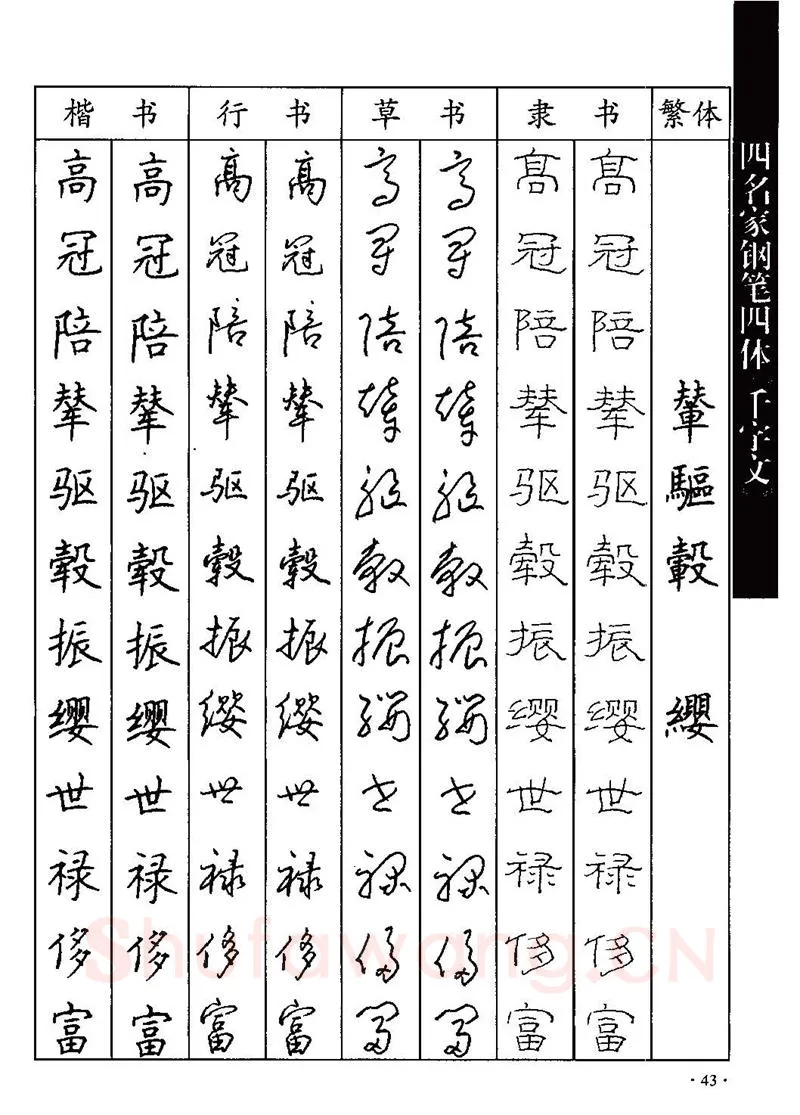 楷书 行书 草书 隶书 繁体
高 高 高 高 高 高 高 高
冠 冠 冠 冠 冠 冠 冠 冠
陪 陪 陪 陪 陪 陪 陪 陪
辇 辇 辇 辇 辇 辇 辇 辇 輦
驱 驱 驱 驱 驱 驱 驱 驱 驅
毂 毂 毂 毂 毂 毂 毂 毂 轂
振 振 振 振 振 振 振 振
缨 缨 缨 缨 缨 缨 缨 缨 纓
世 世 世 世 世 世 世 世
禄 禄 禄 禄 禄 禄 禄 禄
侈 侈 侈 侈 侈 侈 侈 侈
富 富 富 富 富 富 富 富
四名家钢笔四体《千字文》
Shufawang.CN
·43·